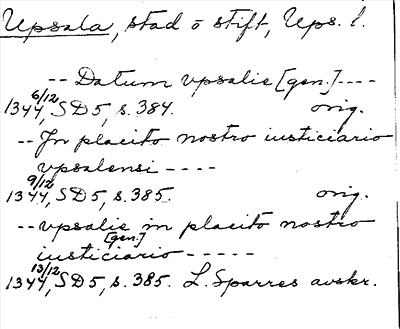 Upsala, stad o stift, Ups. l.
-- Datum vpsalie [gen.] ----
1344 6/12, SD5, s. 384. orig.
-- Jn placito nostro iusticiario
vpsalensi ----
1344 9/12, SD5, s. 385. orig.
-- vpsalie in placito nostro
[gen.]
iusticiario -----
1344 13/12, SD5, s. 385. L. Sparres avskr.